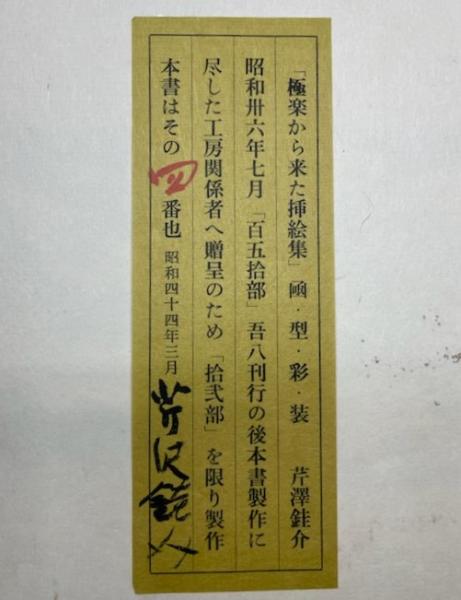 「極楽から来た挿絵集」 凾・型・彩・装　芹澤銈介
昭和卅六年七月「百五拾部」吾八刊行の後本書製作に
尽した工房関係者へ贈呈のため「拾弐部」を限り製作
本書はその四番也 昭和四十四年三月 芹沢銈介